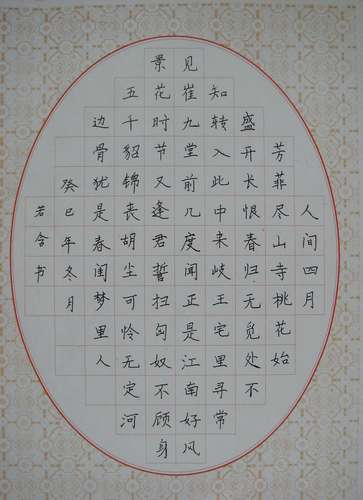 人间四月
芳菲尽山寺桃花始
盛开长恨春归无觅处不
知转入此中来岐王宅里寻常
见崔九堂前几度闻正是江南好风
景花时节又逢君誓扫匈奴不顾身
五千貂锦丧胡尘可怜无定河
边骨犹是春闺梦里人
癸巳年冬月
若含书